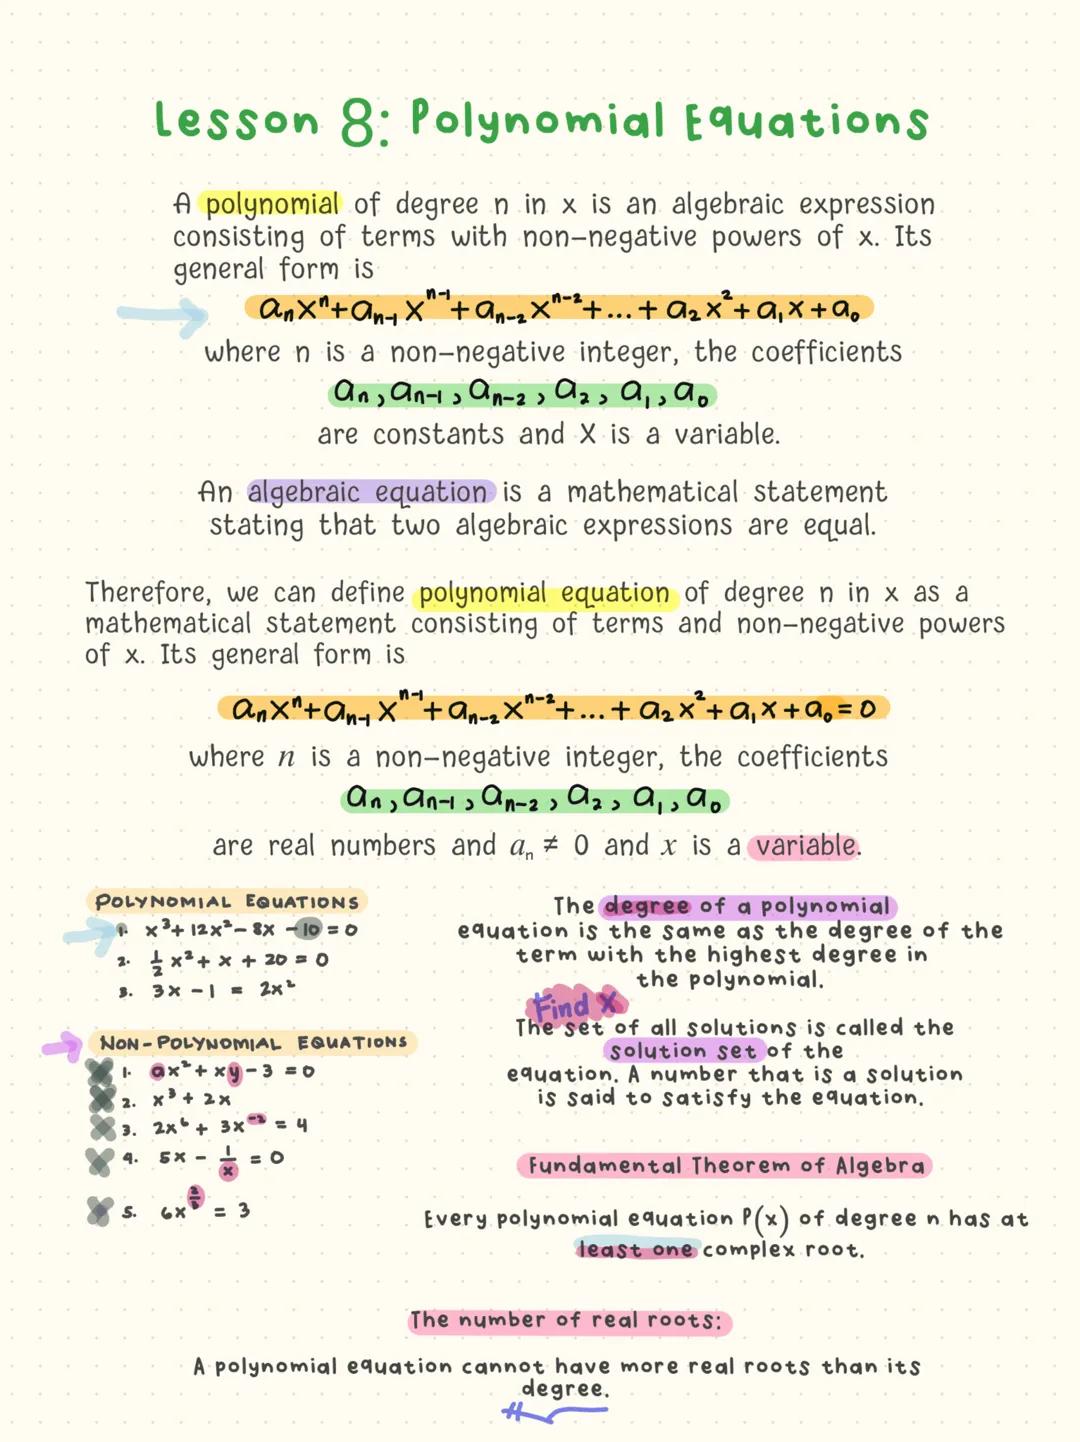 Lesson 8: Polynomial Equations
A polynomial of degree n in x is an algebraic expression
consisting of terms with non-negative powers of x. Its
general form is
aₙxⁿ+aₙ₋₁xⁿ⁻¹+aₙ₋₂xⁿ⁻²+...+a₂x²+a₁x+a₀
where n is a non-negative integer, the coefficients
aₙ, aₙ₋₁, aₙ₋₂, a₂, a₁, a₀
are constants and X is a variable.
An algebraic equation is a mathematical statement
stating that two algebraic expressions are equal.
Therefore, we can define polynomial equation of degree n in x as a
mathematical statement consisting of terms and non-negative powers
of x. Its general form is
aₙxⁿ+aₙ₋₁xⁿ⁻¹+aₙ₋₂xⁿ⁻²+...+a₂x²+a₁x+a₀=0
where n is a non-negative integer, the coefficients
aₙ, aₙ₋₁, aₙ₋₂, a₂, a₁, a₀
are real numbers and aₙ ≠ 0 and x is a variable.
POLYNOMIAL EQUATIONS
1. x³+12x²-8x-10=0
2. 1/2 x²+x+20=0
3. 3x-1 = 2x²
NON-POLYNOMIAL EQUATIONS
1. ax²+xy-3=0
2. x³+2x
3. 2x⁶+3x⁻²=4
4. 5x - 1/x = 0
5. 6x = 3
The degree of a polynomial
equation is the same as the degree of the
term with the highest degree in
the polynomial.
Find X
The set of all solutions is called the
solution set of the
equation. A number that is a solution
is said to satisfy the equation.
Fundamental Theorem of Algebra
Every polynomial equation P(x) of degree n has at
least one complex root.
The number of real roots:
A polynomial equation cannot have more real roots than its
degree.